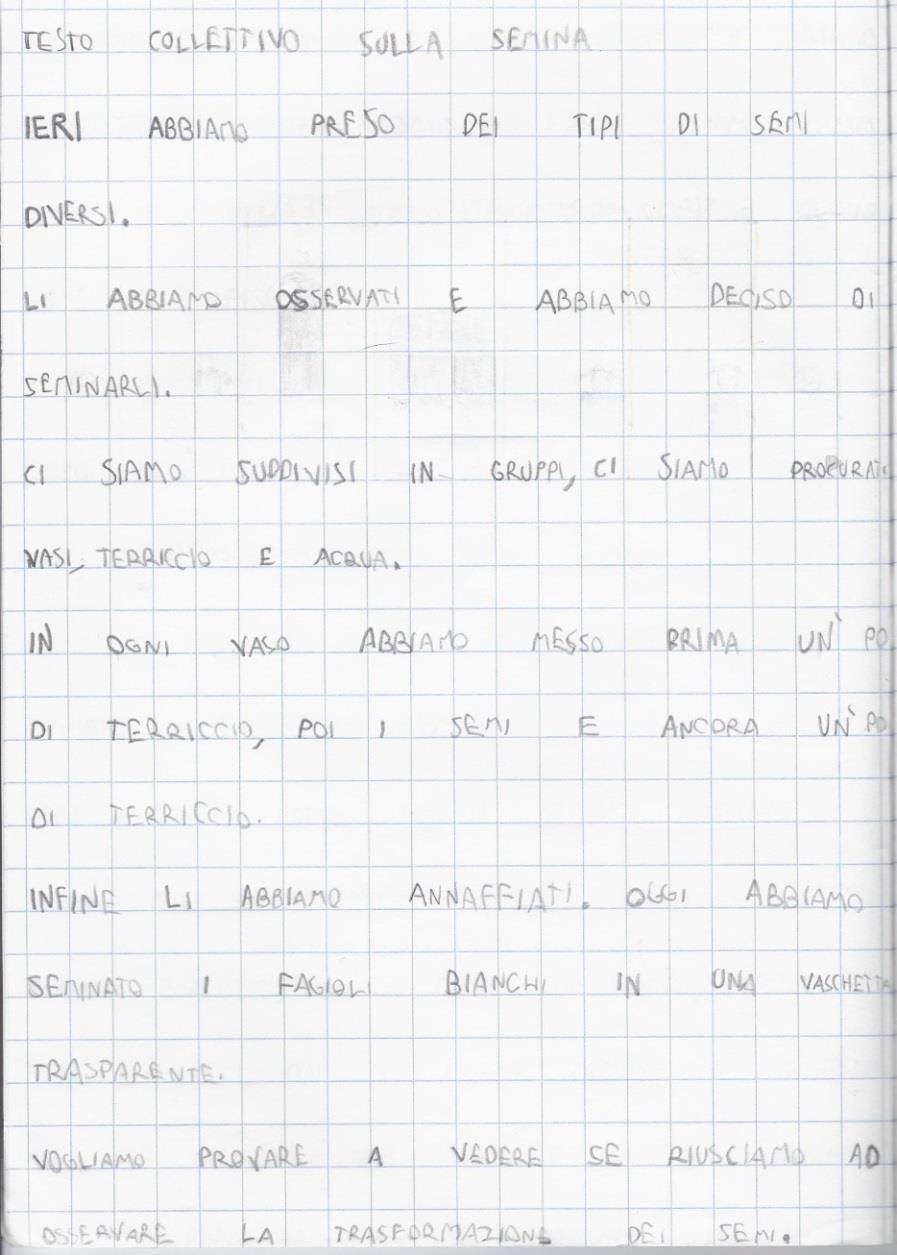 TESTO COLLETTIVO SULLA SEMINA
IERI ABBIAMO PRESO DEI TIPI DI SEMI
DIVERSI.
LI ABBIAMO OSSERVATI E ABBIAMO DECISO DI
SEMINARLI.
CI SIAMO SUDDIVISI IN GRUPPI, CI SIAMO PROCURATI
VASI, TERRICCIO E ACQUA.
IN OGNI VASO ABBIAMO MESSO BRIMA UN' PO
DI TERRICCIO, POI I SEMI E ANCORA UN' PO
DI TERRICCIO.
INFINE LI ABBIAMO ANNAFFIATI. OGGI ABBIAMO
SEMINATO I FAGIOLI BIANCHI IN UNA VASCHETTA
TRASPARENTE.
VOGLIAMO PROVARE A VEDERE SE RIUSCIAMO AD
OSSERVARE LA TRASFORMAZIONE DEI SEMI.